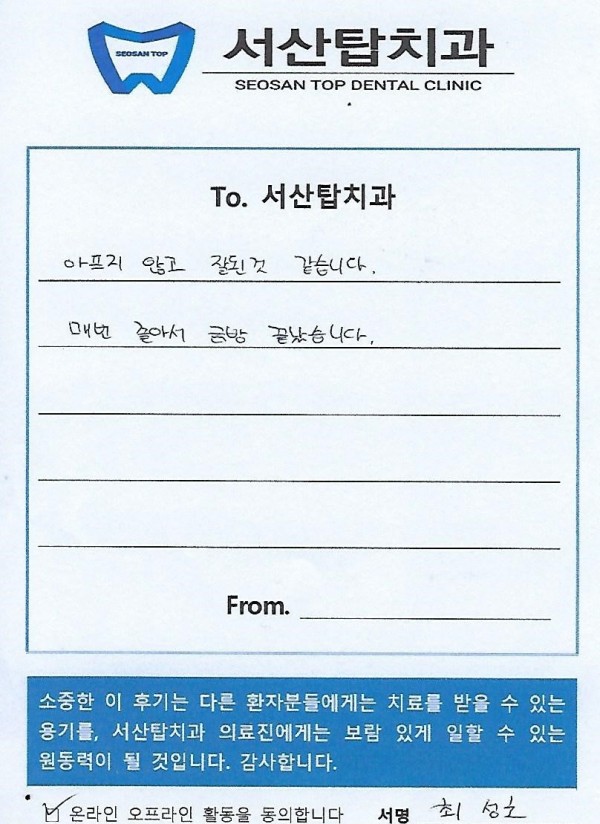 SEOSAN TOP
서산탑치과
SEOSAN TOP DENTAL CLINIC
To. 서산탑치과
아프지 않고 잘된것 같습니다.
매번 졸아서 금방 끝났습니다.
From.
소중한 이 후기는 다른 환자분들에게는 치료를 받을 수 있는
용기를, 서산탑치과 의료진에게는 보람 있게 일할 수 있는
원동력이 될 것입니다. 감사합니다.
온라인 오프라인 활동을 동의합니다 서명 최 성호